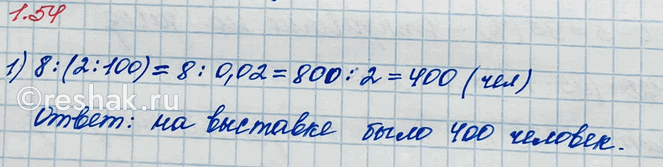 1.54
1) 8:(2:100)=8:0,02=800:2=400 (чел)
©reshak.ru
Ответ: на выставке было 400 человек.